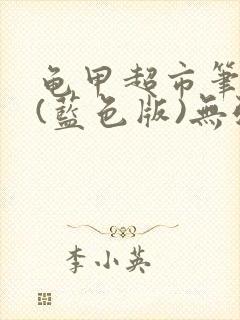 龟甲超市筆
(藍色版)無
李小英